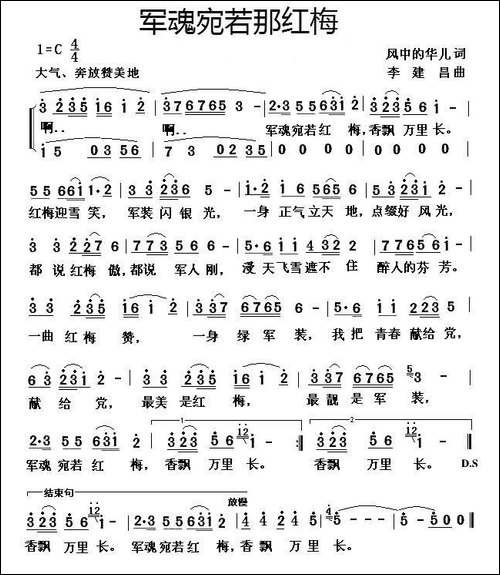 军魂宛若那红梅
1=C 4/4
风中的华儿 词
大气、奔放赞美地
李建昌 曲
3 2 3 5 1 6 1 2 | 3 7 6 7 6 5 3 - | 2·3 5 5 6 3 1 2 | 3 2 3 1 2 1 - |
啊.. 啊.. 军魂宛若红 梅,香飘 万里 长。
1 5 0 3 5 6 | 7 3 0 2 3 5 | 0 0 0 0 | 0 0 0 0 |
5 5 6 6 1 1·2 | 3 3 2 3 6 5 - | 1·2 1 6 5 6 1 | 5 5 2 3 2 - |
红梅迎雪 笑, 军装 闪 银 光, 一身 正气立天 地,点缀好 风光,
3 3 2 2 7 6 | 7 7 3 5 5 6 - | 5·6 1 1 3 1 2 | 2 2 3 7 6 5 - |
都 说红梅 傲,都说 军人刚, 漫 天飞雪遮不 住 醉人的芬 芳。
3 3 2 3 5 1 6 1 2 - | 3 3 7 6 7 5 6 - | 5·6 1 1 2 3 1 2 |
一曲 红 梅 赞, 一身 绿 军 装, 我 把 青春 献给 党,
6 3 2 3 1 2 - | 3 3 2 3 5 1 6 1 2 | 3 3 7 6 7 6 5 3 - |
献 给 党, 最美 是红 梅, 最 靓 是 军 装,
1 2
2·3 5 5 6 3 1 2 | 3 2 3 5 6 1 - :| 3 2 3 5 6 1 - |
军魂 宛若 红 梅, 香飘 万里 长。 香飘 万里 长。 D.S
结束句 放慢
3 2 3 5 6 1 - | 2·3 5 5 6 3 1 2 | 4 4 4 5 4 | 5 - - - | 5 - - - |
香飘 万里 长。 军魂 宛若红 梅,香飘 万里 长。